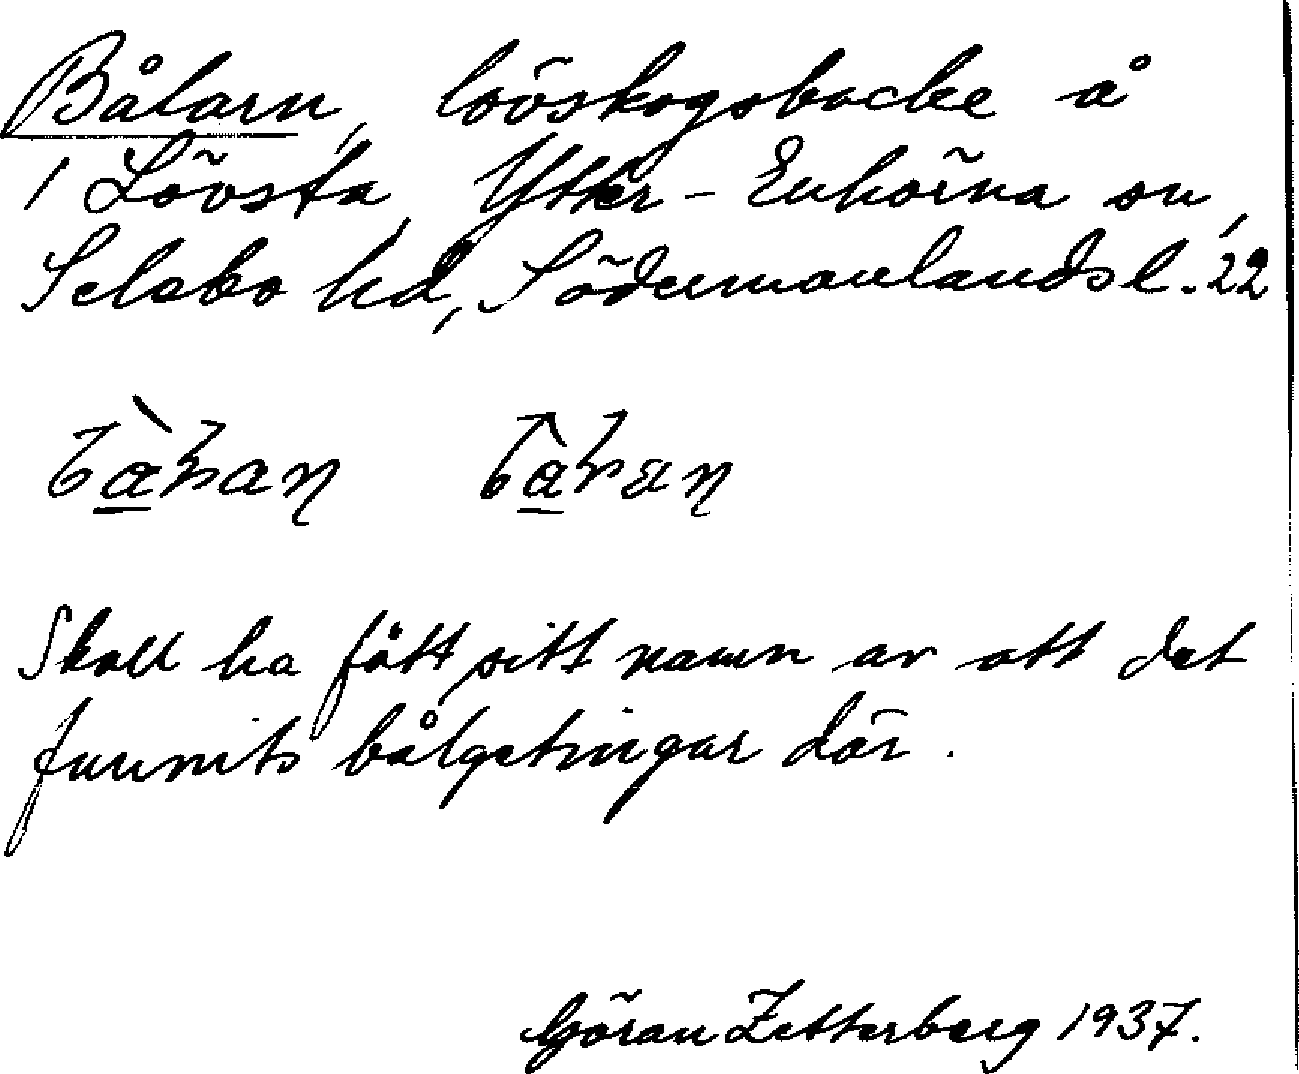 Bålarn, lövskogsbacke å
1 Lövsta, Ytter-Enhörna sn,
Selebo hd, Södermanlands l. 22
Skall ha fått sitt namn av att det
funnits bålgetingar där.
Göran Zetterberg 1937.